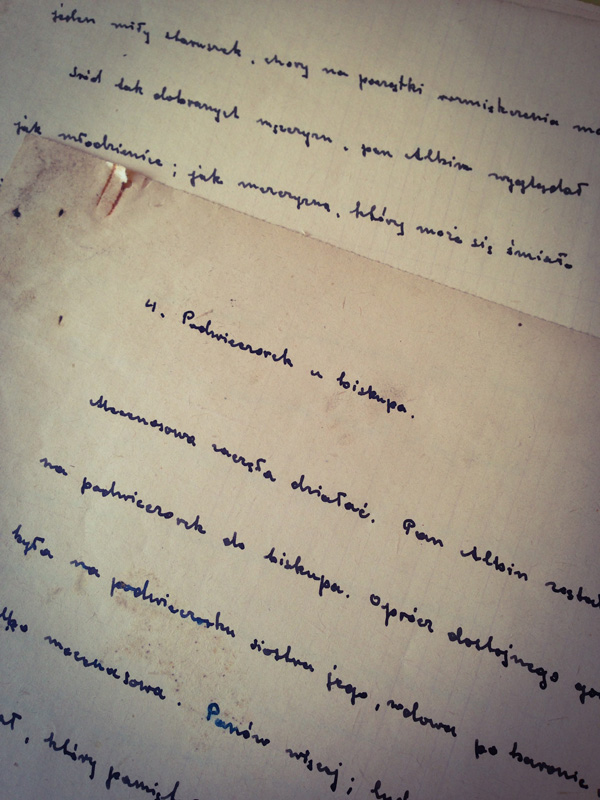 jeden miły staruszek, chory na początki rozmiękczenia
Śród tak dobranych mężczyzn, pan Albin wyglądał
jak młodzieniec; jak mężczyzna, który może się śmiało
4. Podwieczorek u biskupa.
Mecenasowa zaczęła działać. Pan Albin został
na podwieczorek do biskupa. Oprócz dostojnego
była na podwieczorku siostra jego, wdowa po baronie
mecenasowa. Panów więcej;
który